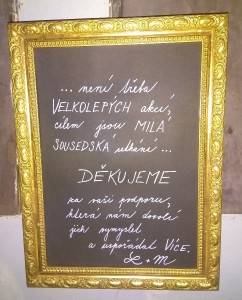 ... není třeba
VELKOLEPÝCH akcí,
cílem jsou MILÁ
SOUSEDSKÁ utkání ...
DĚKUJEME
za vaši podporu,
která nám dovolí
jich vymyslet
a uspořádat VÍCE.
L + M